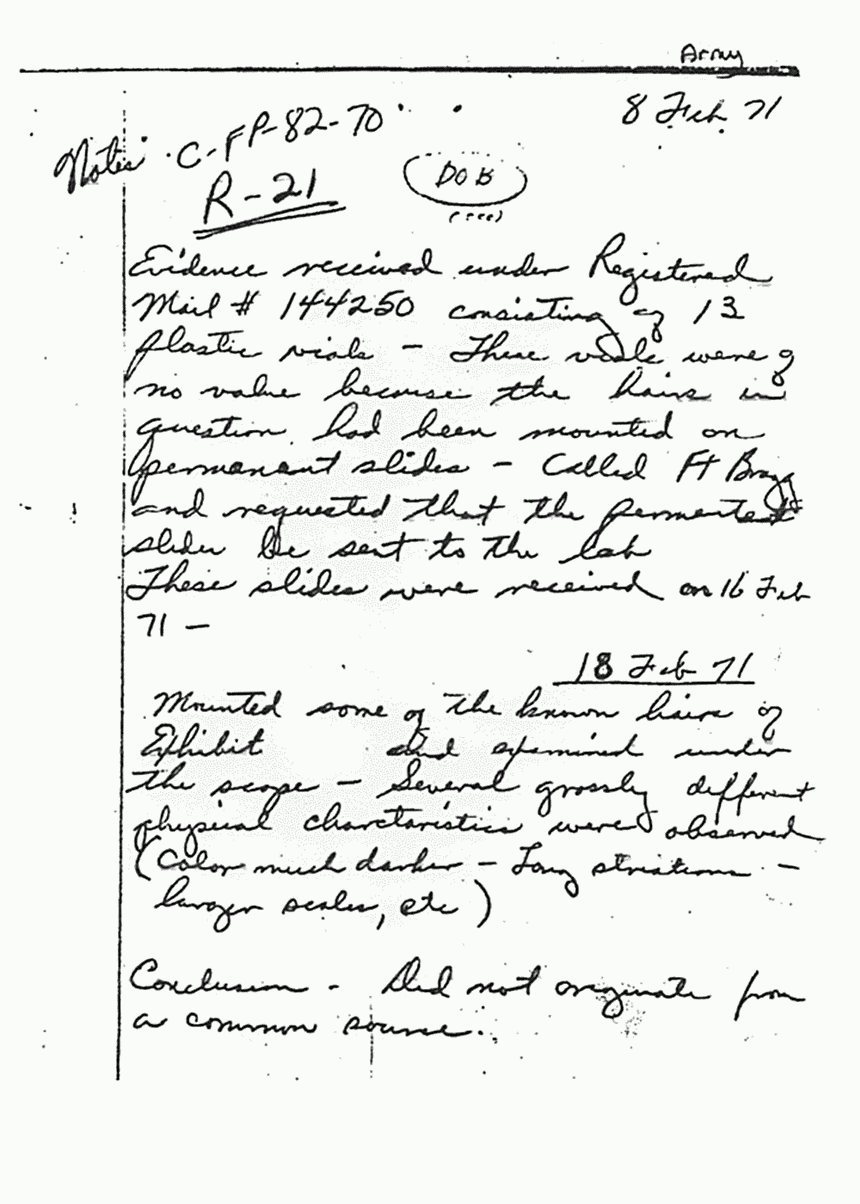 Army
8 Feb. 71
Notes C-FP-82-70
R-21
DOB
Evidence received under Registered
Mail # 144250 consisting of 13
plastic vials - These vials were of
no value because the hairs in
question had been mounted on
permanant slides - Called Ft Bragg
and requested that the
slides be sent to the lab
These slides were received on 16 Feb
71 -
18 Feb 71
Mounted some of the known hairs of
Exhibit and examined under
the scope - Several grossly different
physical charctaristics were observed
(Color much darker - Long striations -
larger scales, etc)
Conclusion - Did not originate from
a common source.